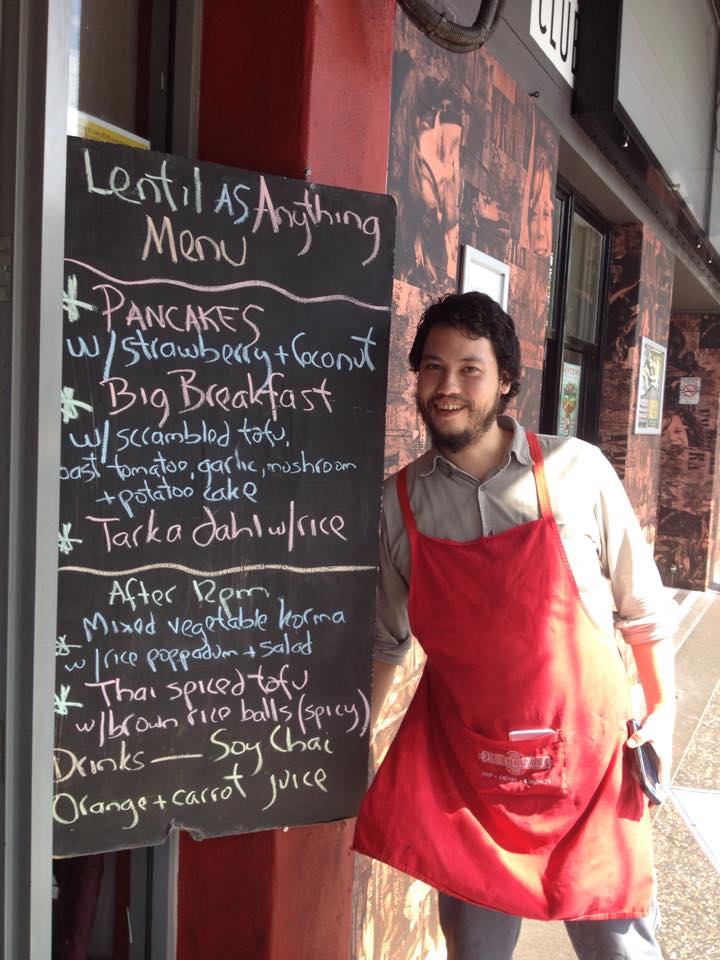 CLUB
Lentil AS Anything
Menu
* PANCAKES
w/strawberry + Coconut
* Big Breakfast
w/scrambled tofu,
oast tomatoo, garlic, mushroom
+ potatoo cake
* Tarka dahl w/rice
After 12pm
* Mixed vegetable korma
w/rice poppadum + salad
* Thai spiced tofu
w/brown rice balls (spicy)
Drinks — Soy Chai
Orange + carrot juice